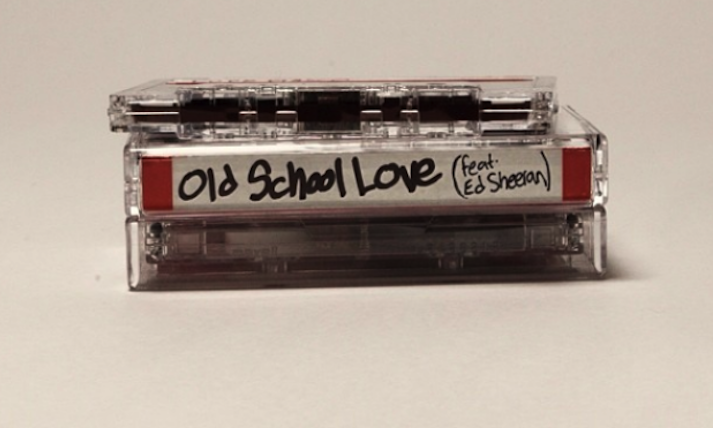 Old School Love (feat.
Ed Sheeran)